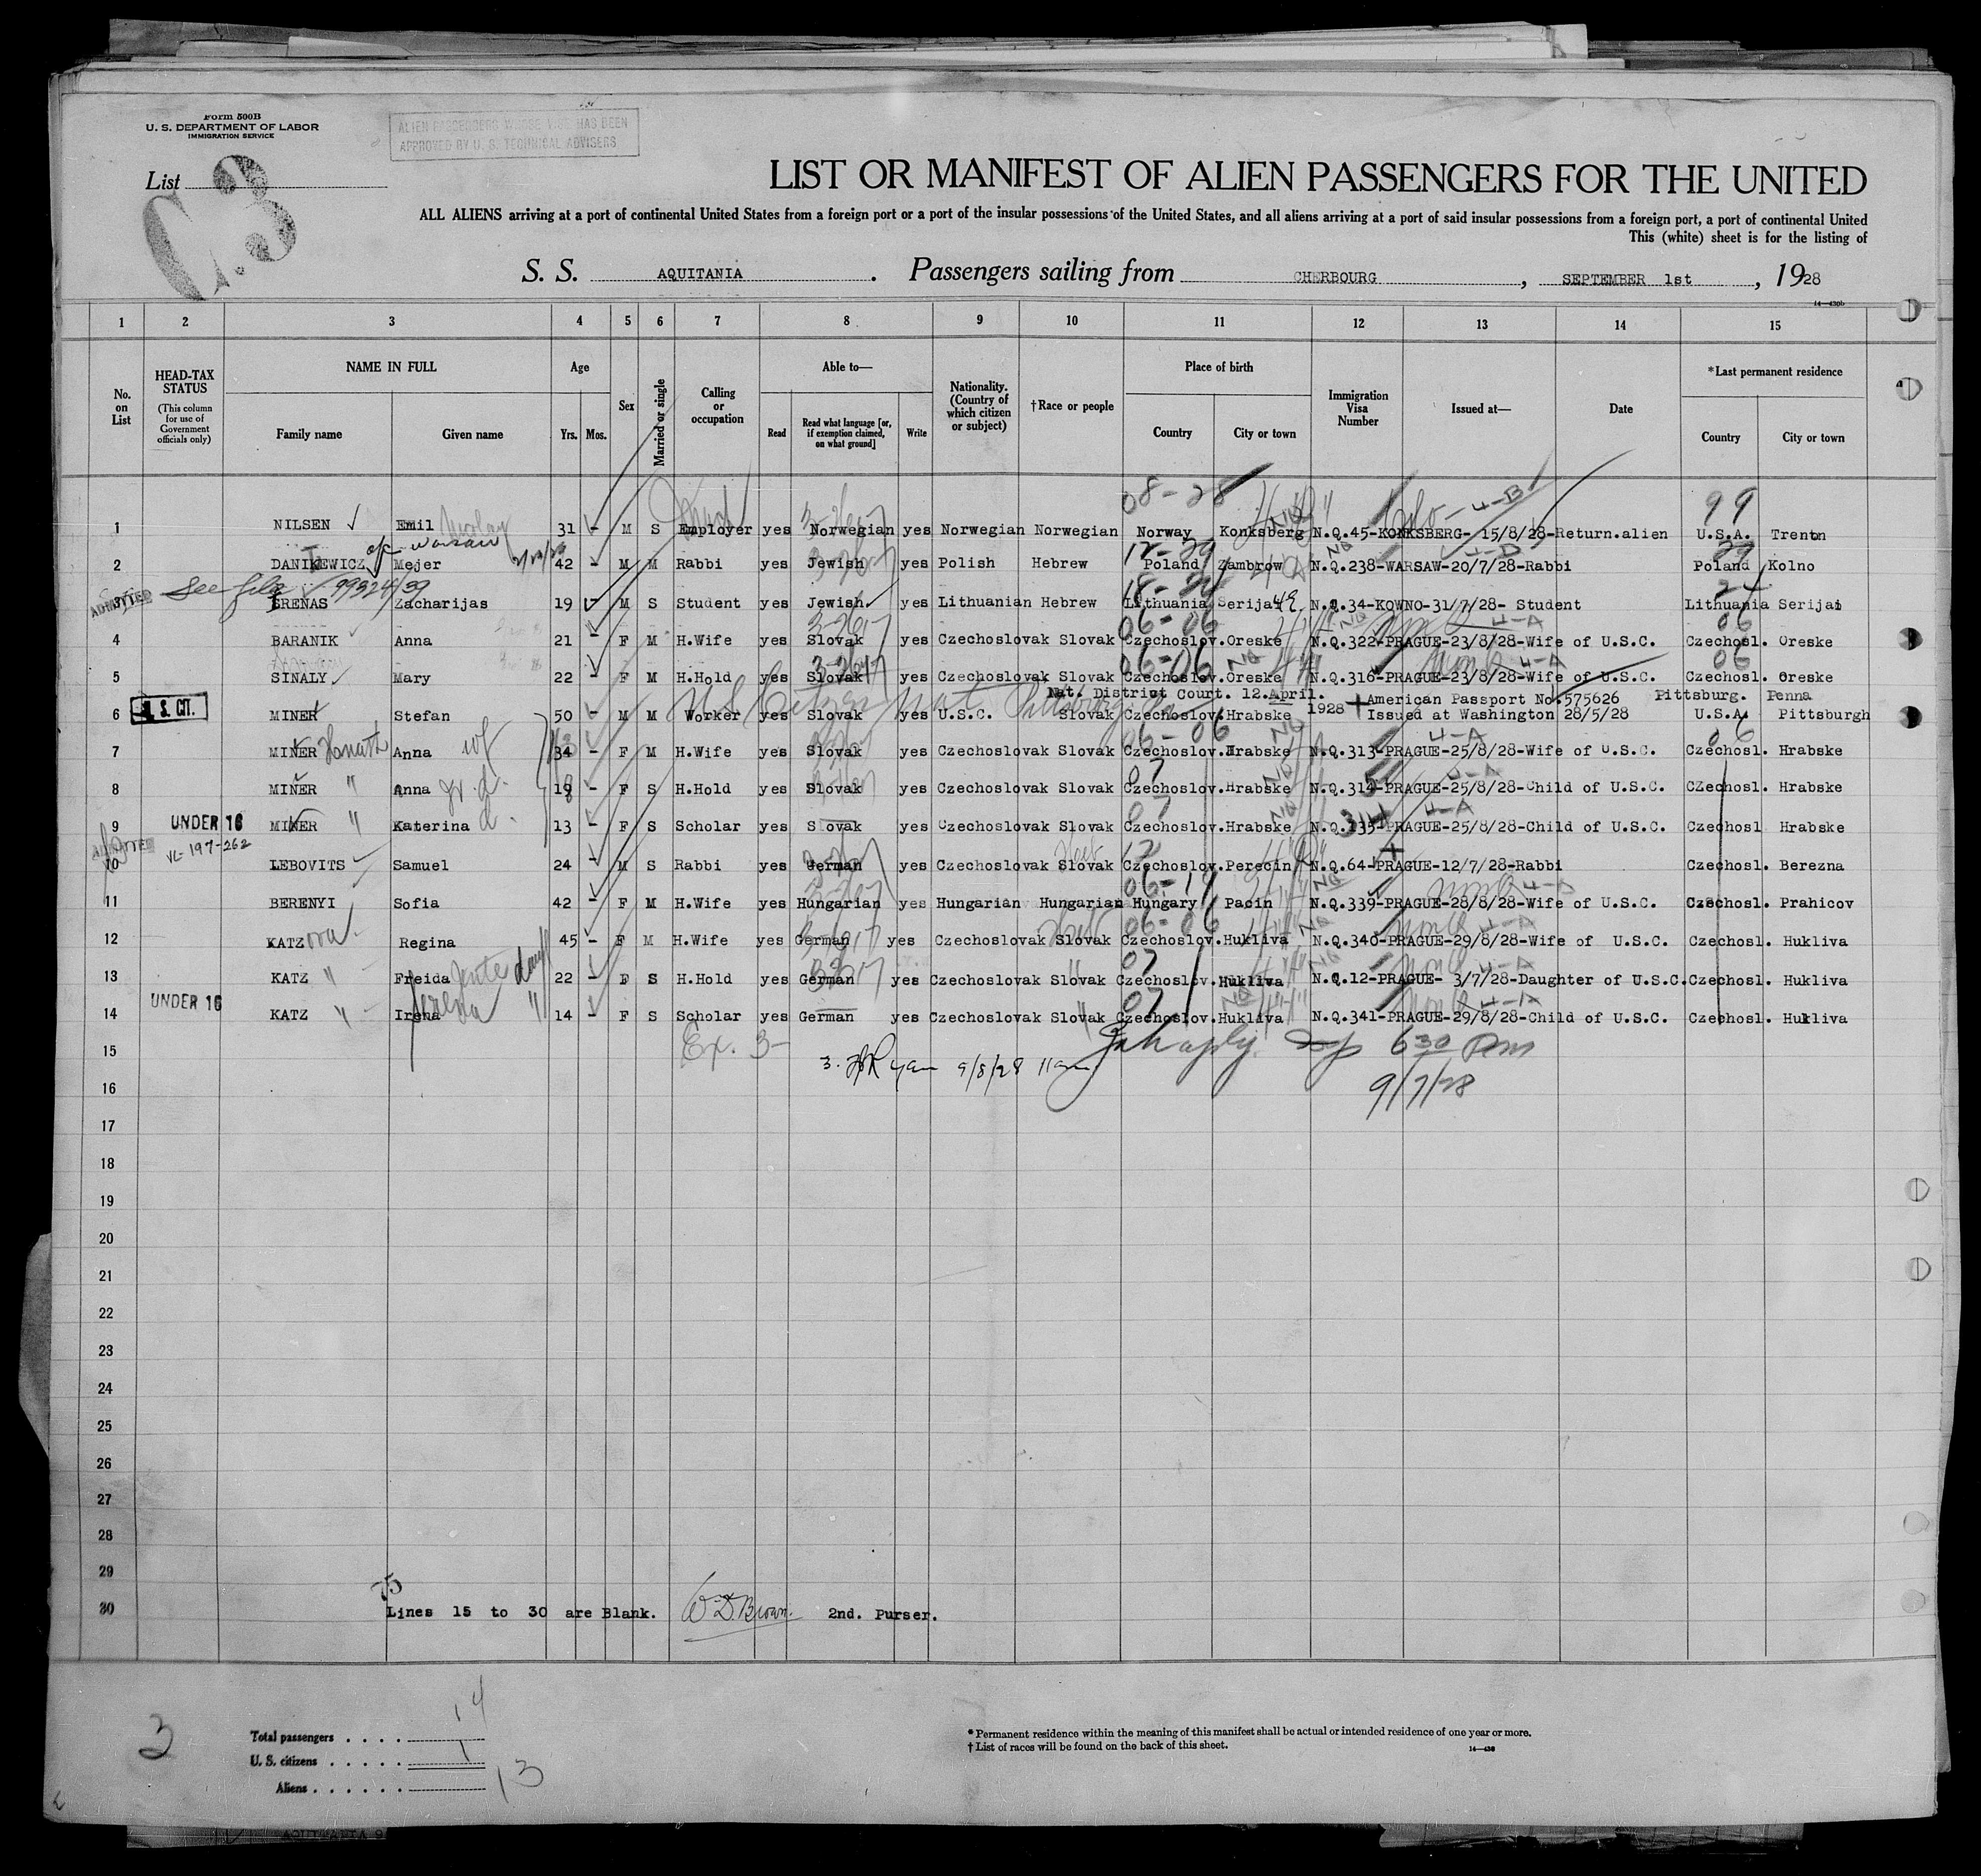 Form 500B
U. S. DEPARTMENT OF LABOR
IMMIGRATION SERVICE
ALIEN PASSENGERS WHOSE VISE HAS BEEN
APPROVED BY U. S. TECHNICAL ADVISERS
List
LIST OR MANIFEST OF ALIEN PASSENGERS FOR THE UNITED
ALL ALIENS arriving at a port of continental United States from a foreign port or a port of the insular possessions of the United States, and all aliens arriving at a port of said insular possessions from a foreign port, a port of continental United
This (white) sheet is for the listing of
S. S. AQUITANIA . Passengers sailing from CHERBOURG , SEPTEMBER 1st , 1928
14—430b
1 2 3 4 5 6 7 8 9 10 11 12 13 14 15
No. on List
HEAD-TAX STATUS (This column for use of Government officials only)
NAME IN FULL Family name Given name
Age Yrs. Mos.
Sex
Married or single
Calling or occupation
Able to— Read Read what language [or, if exemption claimed, on what ground] Write
Nationality. (Country of which citizen or subject)
†Race or people
Place of birth Country City or town
Immigration Visa Number
Issued at—
Date
*Last permanent residence Country City or town
08-28 99
1 NILSEN Emil 31 - M S Employer yes Norwegian yes Norwegian Norwegian Norway Konksberg N.Q.45-KONKSBERG- 15/8/28-Return.alien U.S.A. Trenton
2 DANIKEWICZ Mejer 42 - M M Rabbi yes Jewish yes Polish Hebrew Poland Zambrow N.Q.238-WARSAW-20/7/28-Rabbi Poland Kolno
ADMITTED See file 99324/39
3 BRENAS Zacharijas 19 - M S Student yes Jewish yes Lithuanian Hebrew Lithuania Serijai N.Q.34-KOWNO-31/7/28- Student Lithuania Serijai
4 BARANIK Anna 21 - F M H.Wife yes Slovak yes Czechoslovak Slovak Czechoslov.Oreske N.Q.322-PRAGUE-23/8/28-Wife of U.S.C. Czechosl. Oreske
5 SINALY Mary 22 - F M H.Hold yes Slovak yes Czechoslovak Slovak Czechoslov.Oreske N.Q.316-PRAGUE-23/8/28-Wife of U.S.C. Czechosl. Oreske
Nat. District Court. 12.April. 1928 American Passport No.575626 Pittsburg. Penna
U. S. CIT.
6 MINER Stefan 50 - M M Worker yes Slovak yes U.S.C. Slovak Czechoslov.Hrabske Issued at Washington 28/5/28 U.S.A. Pittsburgh
7 MINER Anna wf 34 - F M H.Wife yes Slovak yes Czechoslovak Slovak Czechoslov.Hrabske N.Q.313-PRAGUE-25/8/28-Wife of U.S.C. Czechosl. Hrabske
8 MINER " Anna 19 - F S H.Hold yes Slovak yes Czechoslovak Slovak Czechoslov.Hrabske N.Q.314-PRAGUE-25/8/28-Child of U.S.C. Czechosl. Hrabske
9 UNDER 16 MINER " Katerina d. 13 - F S Scholar yes Slovak yes Czechoslovak Slovak Czechoslov.Hrabske N.Q.135-PRAGUE-25/8/28-Child of U.S.C. Czechosl Hrabske
ADMITTED VL-197-262
10 LEBOVITS Samuel 24 - M S Rabbi yes German yes Czechoslovak Slovak Czechoslov.Perecin N.Q.64-PRAGUE-12/7/28-Rabbi Czechosl. Berezna
11 BERENYI Sofia 42 - F M H.Wife yes Hungarian yes Hungarian Hungarian Hungary Pacin N.Q.339-PRAGUE-28/8/28-Wife of U.S.C. Czechosl. Prahicov
12 KATZ ova Regina 45 - F M H.Wife yes German yes Czechoslovak Slovak Czechoslov.Hukliva N.Q.340-PRAGUE-29/8/28-Wife of U.S.C. Czechosl. Hukliva
13 KATZ " Freida 22 - F S H.Hold yes German yes Czechoslovak Slovak Czechoslov.Hukliva N.Q.12-PRAGUE- 3/7/28-Daughter of U.S.C.Czechosl. Hukliva
UNDER 16
14 KATZ " Irena 14 - F S Scholar yes German yes Czechoslovak Slovak Czechoslov.Hukliva N.Q.341-PRAGUE-29/8/28-Child of U.S.C. Czechosl. Hukliva
15 Ex. 3- 6 30 pm
16 9/8/28 11am 9/7/28
17
18
19
20
21
22
23
24
25
26
27
28
29
75
30 Lines 15 to 30 are Blank. W. D. Brown. 2nd. Purser.
3
Total passengers . . . . 14
U. S. citizens . . . . . 1
Aliens . . . . . . 13
* Permanent residence within the meaning of this manifest shall be actual or intended residence of one year or more.
† List of races will be found on the back of this sheet.
14—430